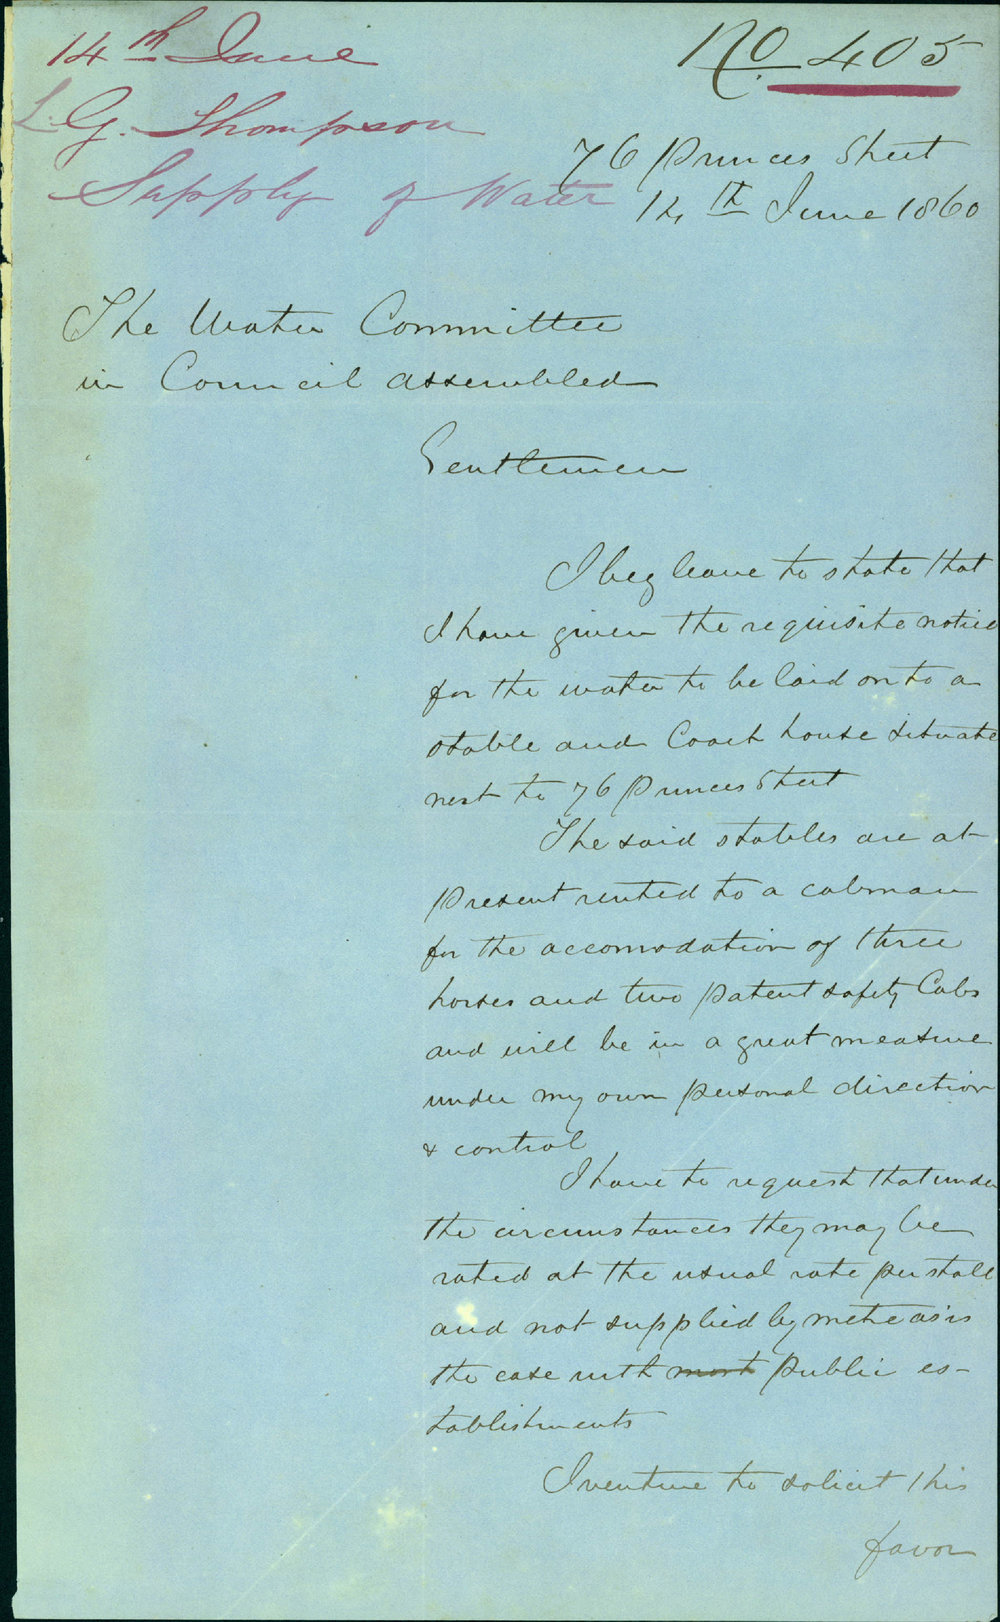 14th June
No. 405
L. G. Thompson
Supply of Water
76 Princes Street
14th June 1860
The Water Committee
in Council assembled
Gentlemen
I beg leave to state that
I have given the requisite notice
for the water to be laid on to a
stable and Coach house situate
next to 76 Princes Street
The said stables are at
present rented to a cabman
for the accomodation of three
horses and two patent safety Cabs
and will be in a great measure
under my own personal direction
& control
I have to request that under
the circumstances they may be
rated at the usual rate per stall
and not supplied by metre as is
the case with most public es-
tablishments
I venture to solicit this
favor